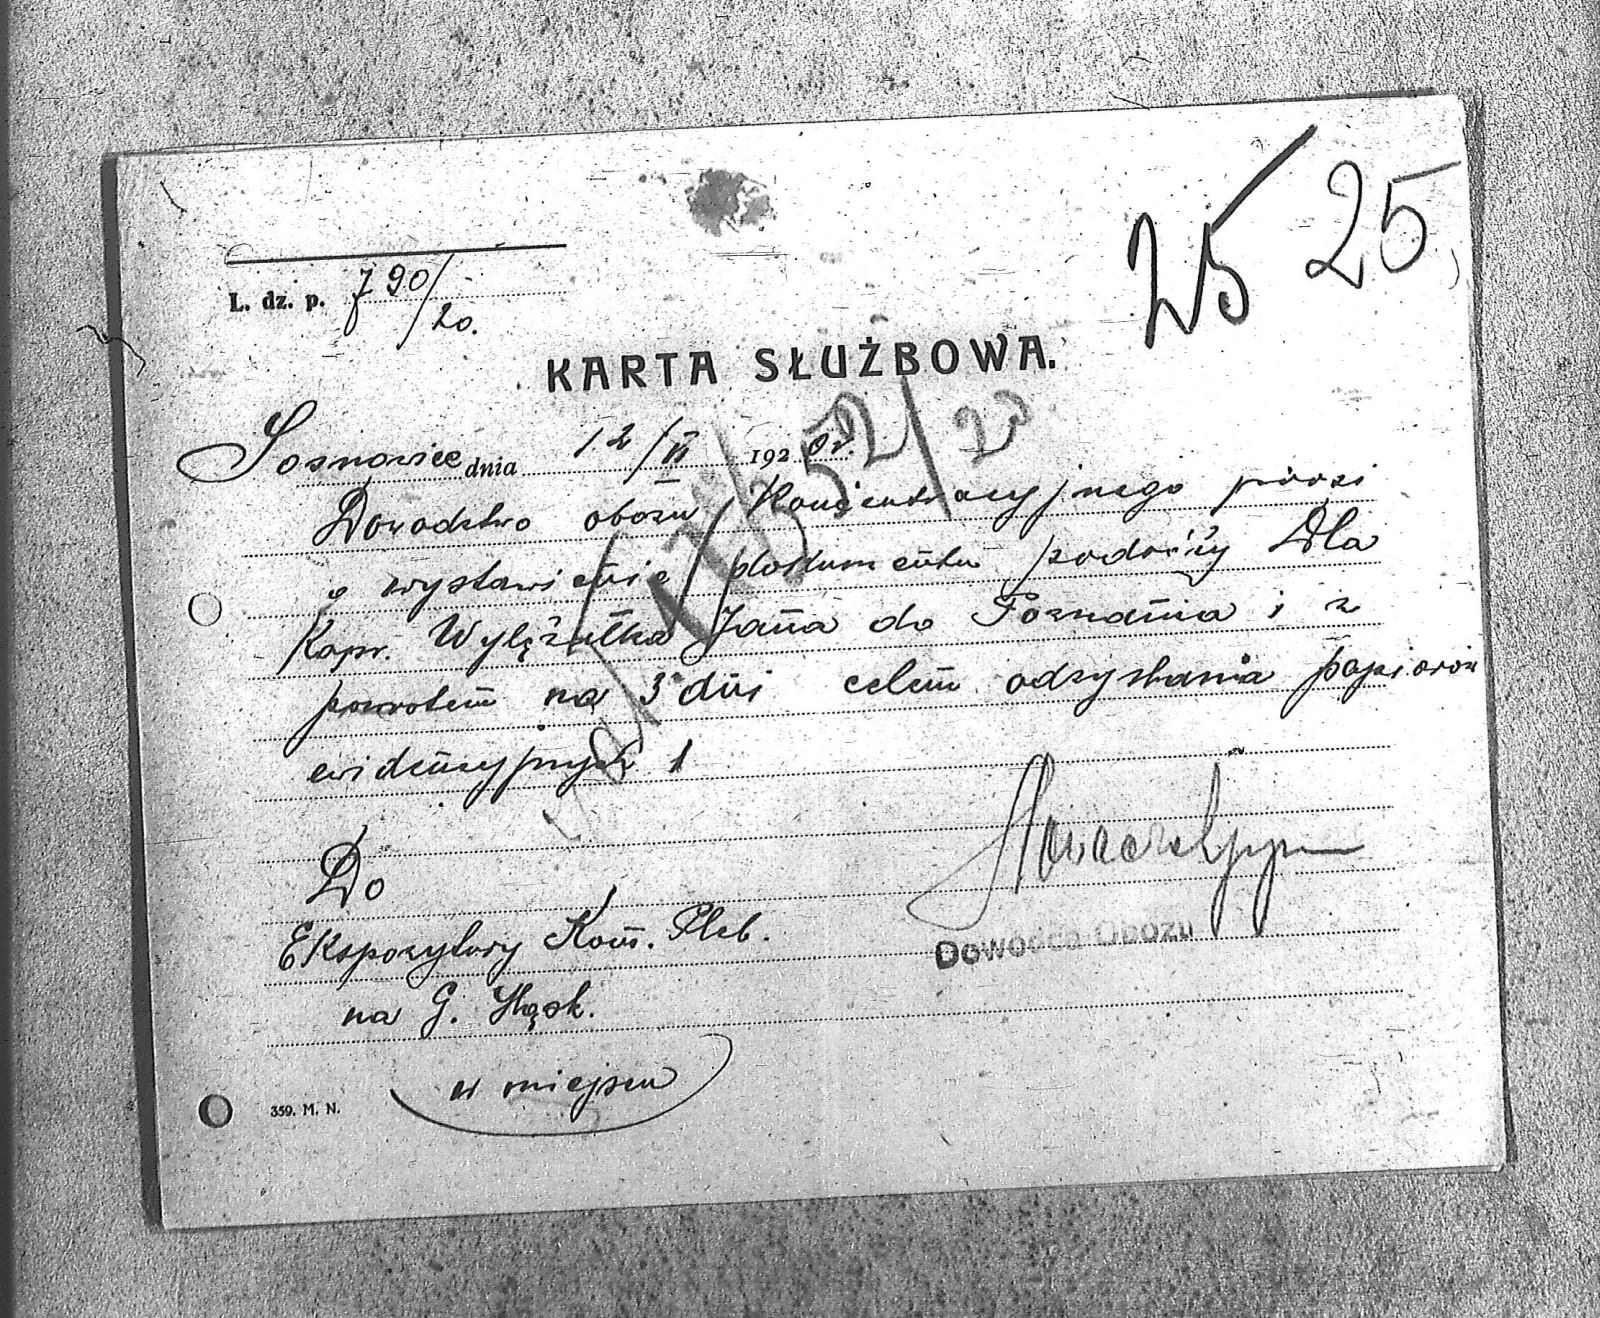 25 25
L. dz. p. 790/20.
KARTA SŁUŻBOWA.
Sosnowiec dnia 12/VI 1920 r.
Dowodztwo obozu Koncentracyjnego prosi
o wystawienie dokumentu podróży Dla
Kapr. Wylężałka Jana do Poznania i z
powrotem na 3 dni celem odzyskania papierów
ewidencyjnych
Do
Dowódca Obozu
Ekspozytury Kom. Pleb.
na G. Śląsk.
w miejscu
359. M. N.